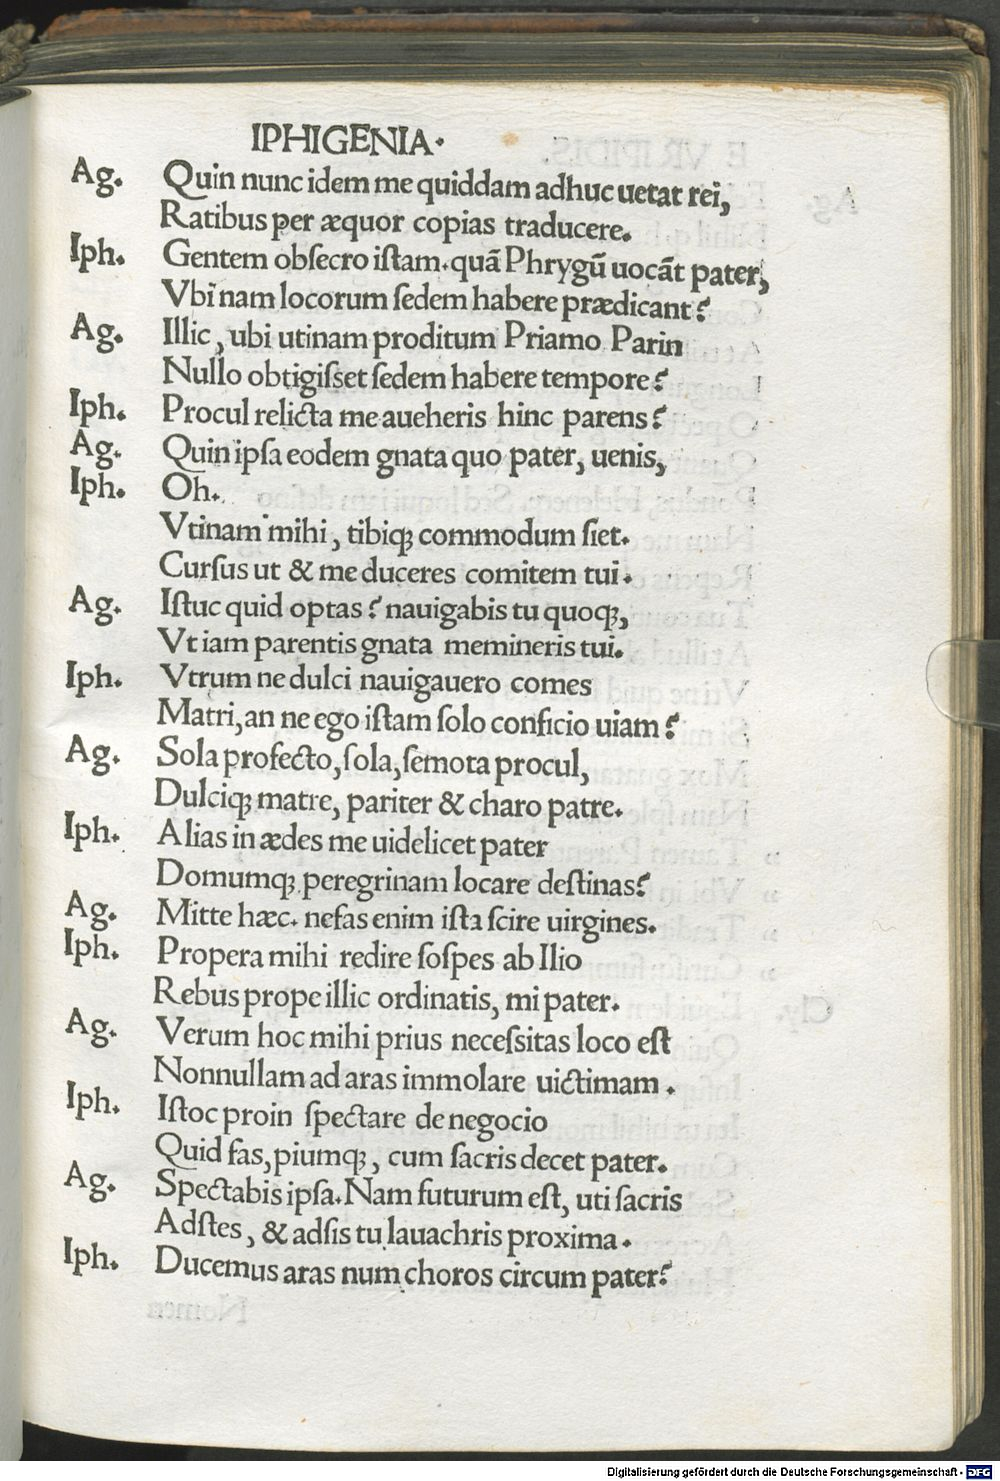 IPHIGENIA·
Ag. Quin nunc idem me quiddam adhuc uetat rei,
Ratibus per æquor copias traducere.
Iph. Gentem obſecro iſtam·quã Phrygũ uocãt pater,
Vbi nam locorum ſedem habere prædicant?
Ag. Illic, ubi utinam proditum Priamo Parin
Nullo obtigiſset ſedem habere tempore?
Iph. Procul relicta me aueheris hinc parens?
Ag. Quin ipſa eodem gnata quo pater, uenis,
Iph. Oh.
Vtinam mihi, tibiqꝫ commodum ſiet.
Curſus ut & me duceres comitem tui.
Ag. Iſtuc quid optas? nauigabis tu quoqꝫ,
Vt iam parentis gnata memineris tui.
Iph. Vtrum ne dulci nauigauero comes
Matri, an ne ego iſtam ſolo conficio uiam?
Ag. Sola profecto, ſola, ſemota procul,
Dulciqꝫ matre, pariter & charo patre.
Iph. Alias in ædes me uidelicet pater
Domumqꝫ peregrinam locare deſtinas?
Ag. Mitte hæc. nefas enim iſta ſcire uirgines.
Iph. Propera mihi redire ſoſpes ab Ilio
Rebus prope illic ordinatis, mi pater.
Ag. Verum hoc mihi prius neceſsitas loco eſt
Nonnullam ad aras immolare uictimam.
Iph. Iſtoc proin ſpectare de negocio
Quid fas, piumqꝫ, cum ſacris decet pater.
Ag. Spectabis ipſa. Nam futurum eſt, uti ſacris
Adſtes, & adſis tu lauachris proxima.
Iph. Ducemus aras num choros circum pater?
Digitalisierung gefördert durch die Deutsche Forschungsgemeinschaft - DFG